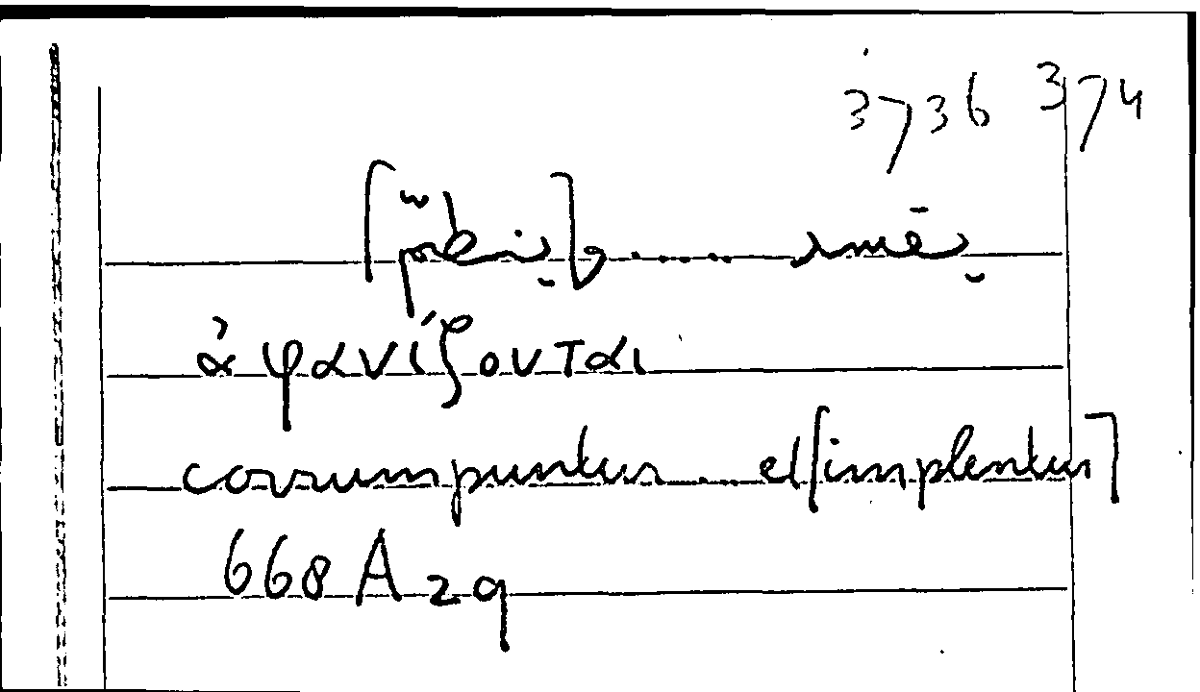 3736 374
ἀφανίζονται
corrumpuntur et [implentur]
668 A 29